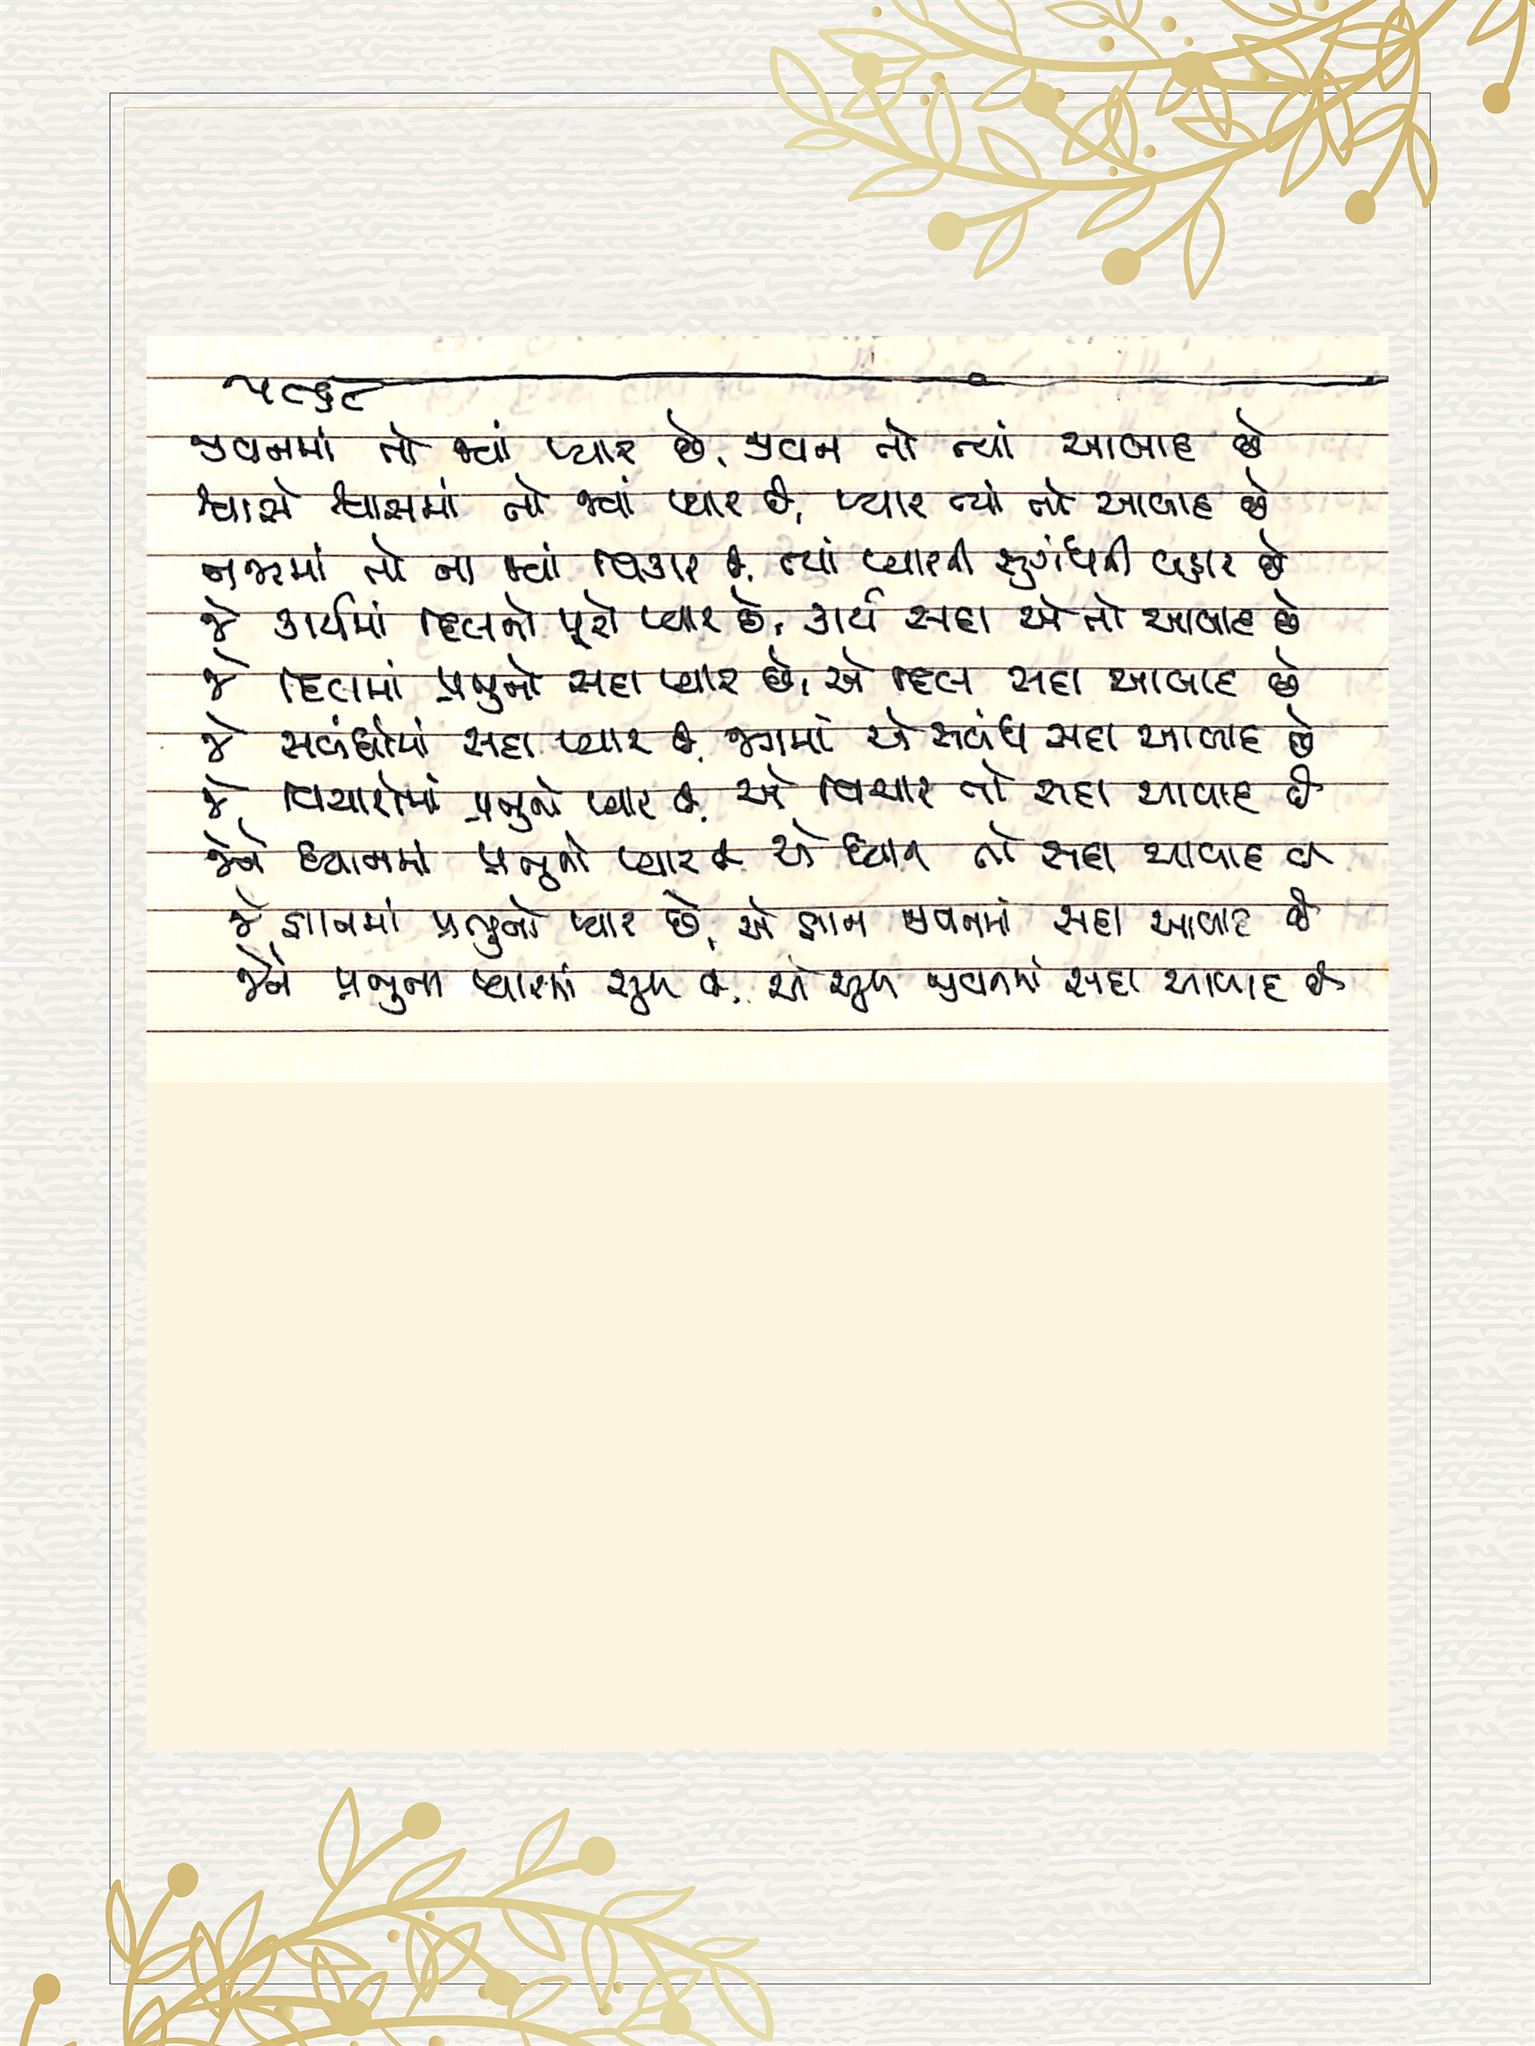 ૫૮૬૮
જીવનમાં તો જ્યાં પ્યાર છે, જીવન તો ત્યાં આબાદ છે
શ્વાસે શ્વાસમાં તો જ્યાં પ્યાર છે, પ્યાર ત્યાં તો આબાદ છે
નજરમાં તો ના જ્યાં વિકાર છે, ત્યાં પ્યારની સુગંધની
જે કાર્યમાં દિલનો પૂરો પ્યાર છે, કાર્ય સદા એ તો આબાદ છે
જે દિલમાં પ્રભુનો સદા પ્યાર છે, એ દિલ સદા આબાદ છે
જે સબંધોમાં સદા પ્યાર છે, જગમાં એ સબંધ સદા આબાદ છે
જે વિચારોમાં પ્રભુનો પ્યાર છે, એ વિચાર તો સદા આબાદ છે
જેને ધ્યાનમાં પ્રભુનો પ્યાર છે એ ધ્યાન તો સદા આબાદ છે
જે જ્ઞાનમાં પ્રભુનો પ્યાર છે, એ જ્ઞાન જીવનમાં સદા આબાદ છે
જેને પ્રભુના પ્યારમાં સુખ છે, એ સુખ જીવનમાં સદા આબાદ છે